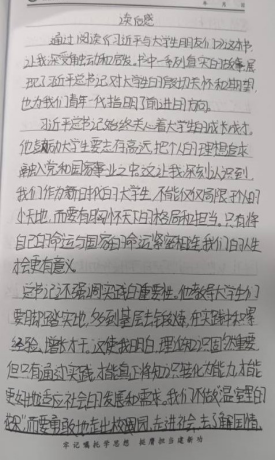 读后感
通过阅读《习近平与大学生朋友们》这本书
让我深受触动和启发。书中一系列真实的故事展
现了习近平总书记对大学生的殷切关怀和期望,
也为我们青年一代指明了前进的方向。
习近平总书记始终关心着大学生的成长成才。
他鼓励大学生要志存高远,把个人的理想追求
融入党和国家事业之中。这让我深刻认识到,
我们作为新时代的大学生,不能仅仅局限于个人的
小天地,而要有胸怀天下的格局和担当。只有将
自己的命运与国家的命运紧密相连,我们的人生
才会更有意义。
总书记还强调实践的重要性。他教导大学生们
要脚踏实地,多到基层去锻炼,在实践中积累
经验,增长才干。这使我明白,理论知识固然重要,
但只有通过实践,才能真正将知识转化为能力,才能
更好地适应社会的发展和需求。我们不做温室里的
花朵",而要勇敢地走出校园,走进社会,去了解国情,
牢记嘱托学思想 挺膺担当建新功